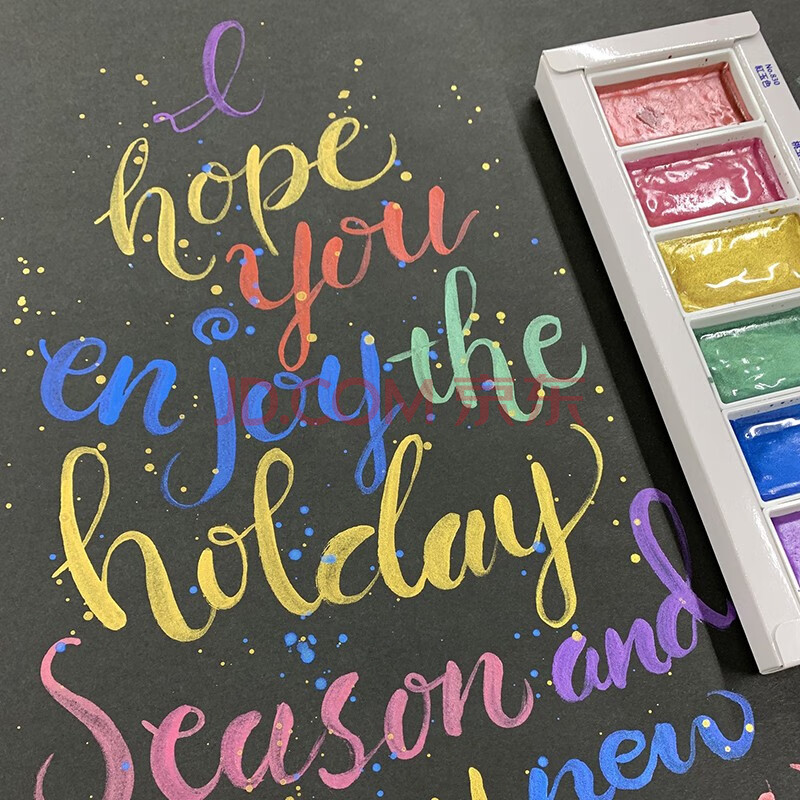 I
hope
you
enjoy the
holday
Season and
new
No.830
紅玉色
JD.COM 京东